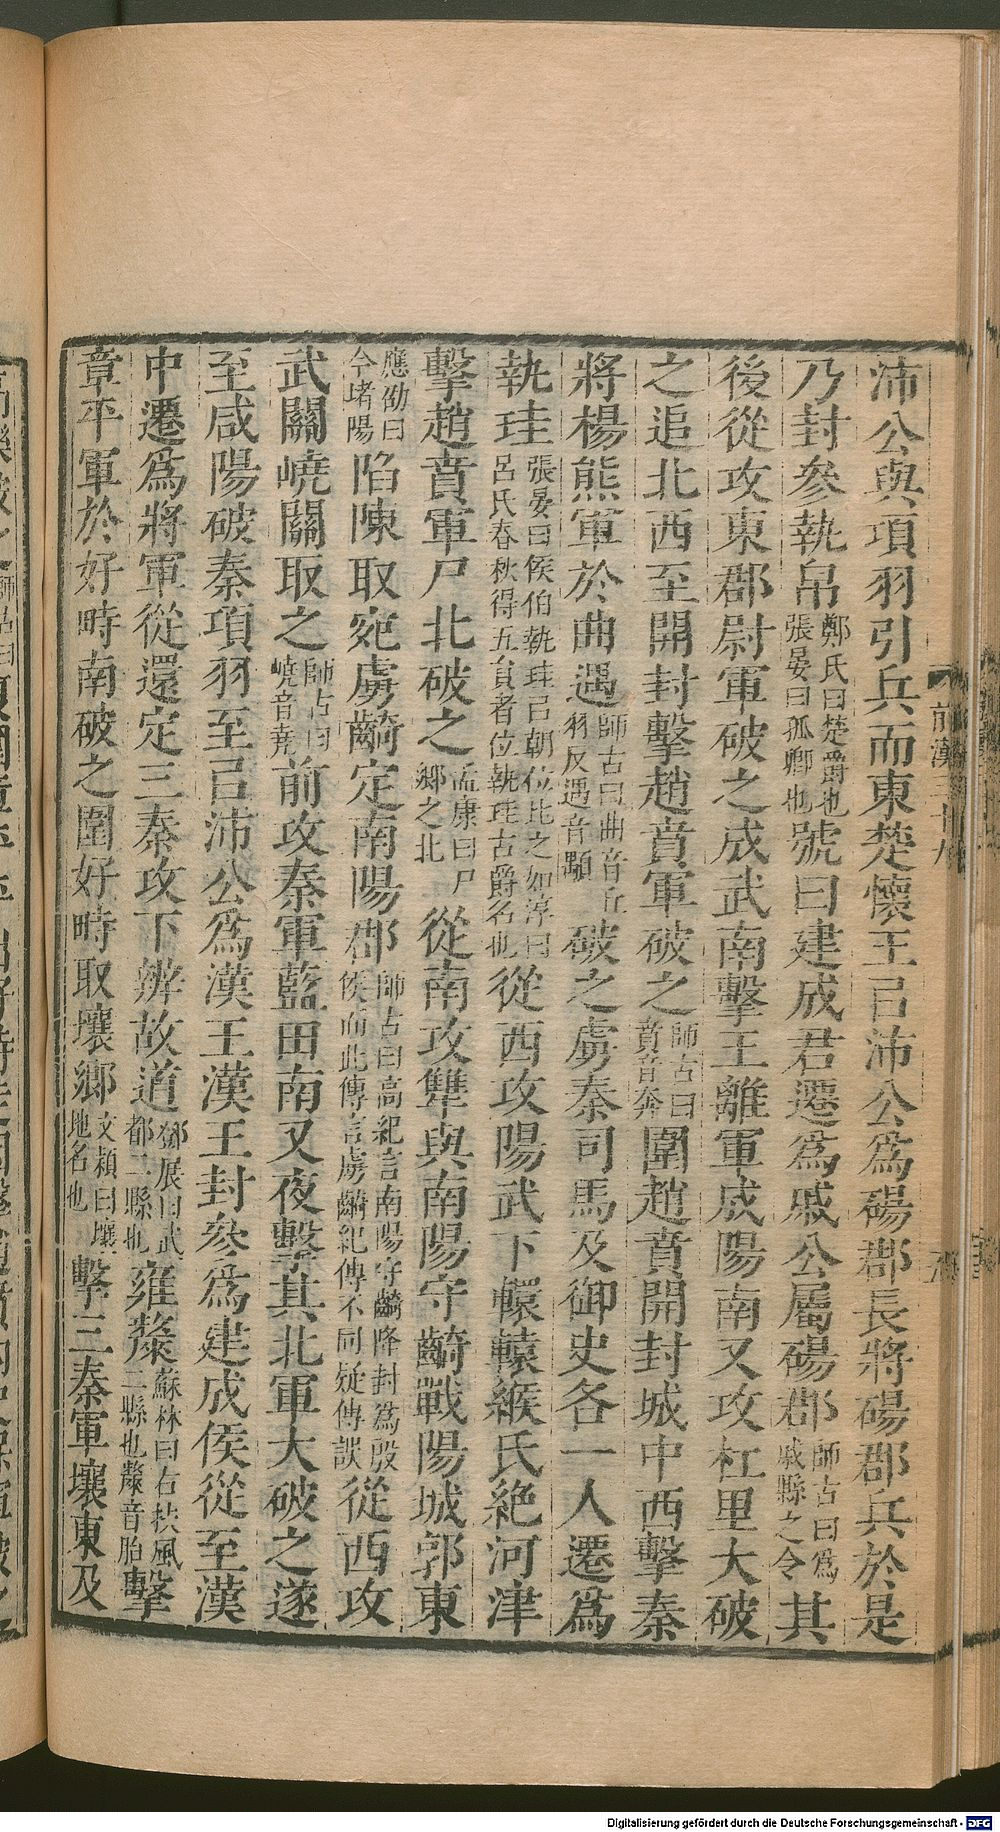 沛公與項羽引兵而東楚懷王㠯沛公爲碭郡長將碭郡兵於是
乃封參執帛鄭氏曰楚爵也張晏曰孤卿也號曰建成君遷爲戚公屬碭郡師古曰爲戚縣之令其
後從攻東郡尉軍破之成武南擊王離軍成陽南又攻杠里大破
之追北西至開封擊趙賁軍破之師古曰賁音奔圍趙賁開封城中西擊秦
將楊熊軍於曲遇師古曰曲音丘羽反遇音顒破之虜秦司馬及御史各一人遷爲
執珪張晏曰侯伯執珪㠯朝位比之如淳曰呂氏春秋得五員者位執珪古爵名也從西攻陽武下轘轅緱氏絶河津
擊趙賁軍尸北破之孟康曰尸鄉之北從南攻犨與南陽守齮戰陽城郭東
應劭曰今堵陽陷陳取宛虜齮定南陽郡師古曰高紀言南陽守齮降封爲殷侯而此傳言虜齮紀傳不同疑傳誤從西攻
武關嶢關取之師古曰嶢音堯前攻秦軍藍田南又夜擊其北軍大破之遂
至咸陽破秦項羽至㠯沛公爲漢王漢王封參爲建成侯從至漢
中遷爲將軍從還定三秦攻下辨故道鄧展曰武都二縣也雍斄蘇林曰右扶風二縣也斄音胎擊
章平軍於好畤南破之圍好畤取壤鄉文穎曰壤地名也擊三秦軍壤東及
前漢三十九
Digitalisierung gefördert durch die Deutsche Forschungsgemeinschaft - DFG